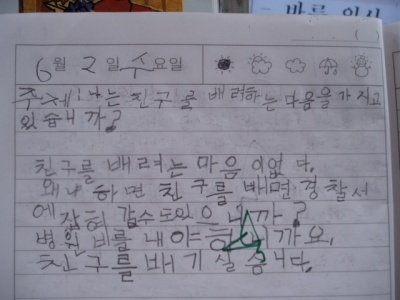 바른 인사
( )
6월 2일 수요일
주제: 나는 친구를 배려하는 마음을 가지고
있습니까?
친구를 배려는 마음이 없다.
왜냐하면 친구를 배면 경찰서
에 잡혀 갈수도 있으니까?
병원비를 내야하니까요,
친구를 배기 싫습니다.